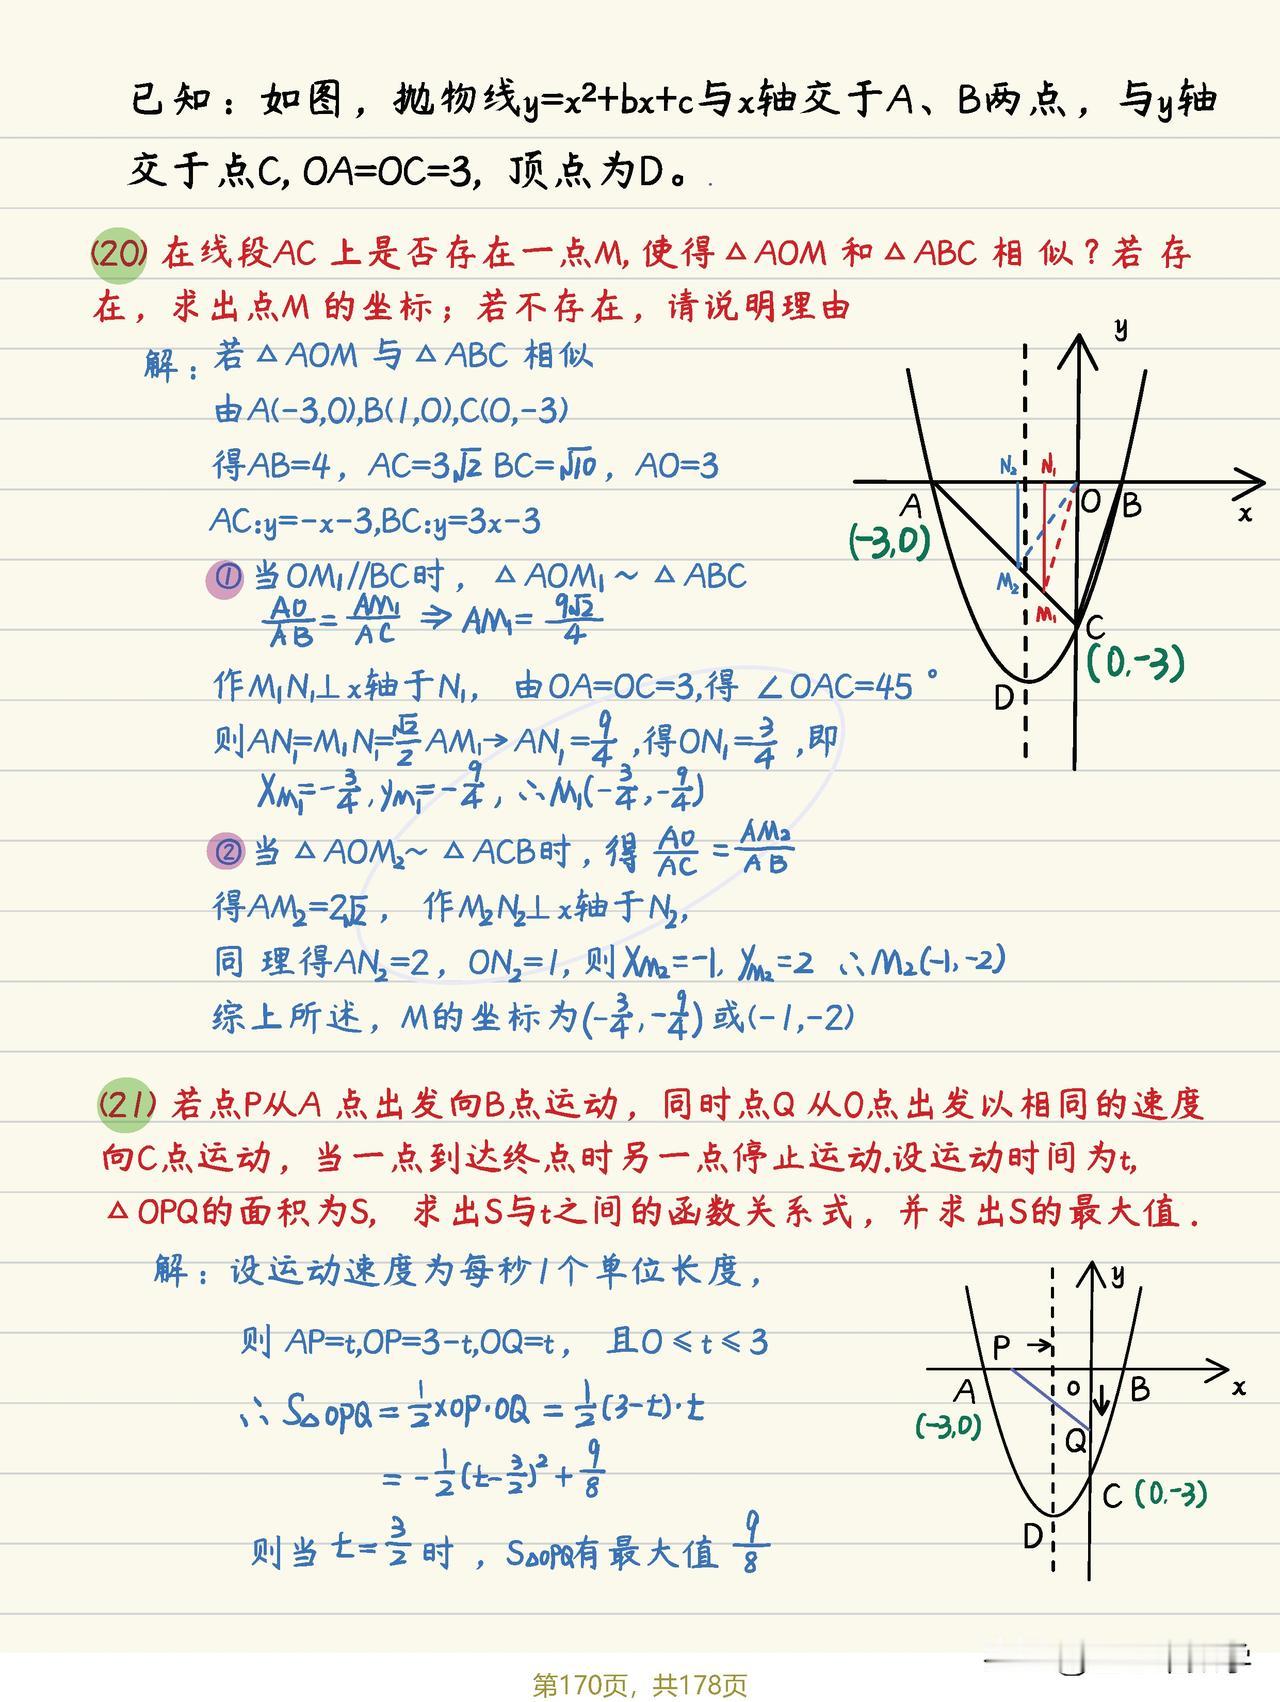 已知：如图，抛物线y=x²+bx+c与x轴交于A、B两点，与y轴
交于点C, OA=OC=3, 顶点为D。
(20) 在线段AC上是否存在一点M,使得△AOM和△ABC相似？若存
在，求出点M的坐标；若不存在，请说明理由
解：若△AOM与△ABC相似
由A(-3,0),B(1,0),C(0,-3)
得AB=4，AC=3√2 BC=√10，AO=3
AC:y=-x-3,BC:y=3x-3
①当OM₁//BC时，△AOM₁~△ABC
AO/AB=AM₁/AC⇒AM₁=9√2/4
作M₁N₁⊥x轴于N₁，由OA=OC=3,得∠OAC=45°
则AN₁=M₁N₁=√2/2AM₁→AN₁=9/4,得ON₁=3/4,即
XM₁=-3/4,yM₁=-9/4，∴M₁(-3/4,-9/4)
②当△AOM₂~△ACB时，得AO/AC=AM₂/AB
得AM₂=2√2，作M₂N₂⊥x轴于N₂,
同理得AN₂=2，ON₂=1,则XM₂=-1,YM₂=2 ∴M₂(-1,-2)
综上所述，M的坐标为(-3/4,-9/4)或(-1,-2)
y
N₂ N₁
A O B x
(-3,0)
M₂ M₁
C
(0,-3)
D
(21) 若点P从A点出发向B点运动，同时点Q从O点出发以相同的速度
向C点运动，当一点到达终点时另一点停止运动.设运动时间为t,
△OPQ的面积为S，求出S与t之间的函数关系式，并求出S的最大值.
解：设运动速度为每秒1个单位长度，
则AP=t,OP=3-t,OQ=t，且0≤t≤3
∴S△OPQ=1/2×OP·OQ=1/2(3-t)·t
=-1/2(t-3/2)²+9/8
则当t=3/2时，S△OPQ有最大值9/8
y
P→
A O B x
(-3,0)
Q
C (0,-3)
D
第170页，共178页